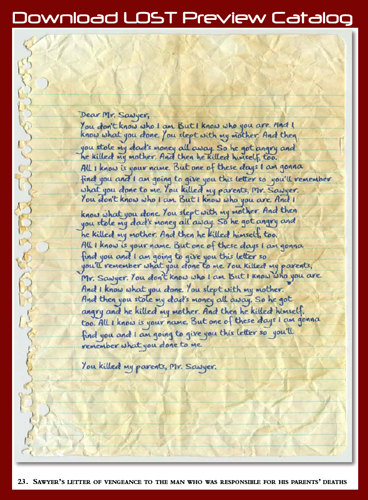 Download LOST Preview Catalog
Dear Mr. Sawyer,
You don't know who I am. But I know who you are. And I
know what you done. You slept with my mother. And then
you stole my dad's money all away. So he got angry and
he killed my mother. And then he killed himself, too.
All I know is your name. But one of these days I am gonna
find you and I am going to give you this letter so you'll remember
what you done to me. You killed my parents, Mr. Sawyer.
You don't know who I am. But I know who you are. And I
know what you done. You slept with my mother. And then
you stole my dad's money all away. So he got angry and
he killed my mother. And then he killed himself, too.
All I know is your name. But one of these days I am gonna
find you and I am going to give you this letter so
you'll remember what you done to me. You killed my parents,
Mr. Sawyer. You don't know who I am. But I know who you are.
And I know what you done. You slept with my mother.
And then you stole my dad's money all away. So he got
angry and he killed my mother. And then he killed himself,
too. All I know is your name. But one of these days I am gonna
find you and I am going to give you this letter so you'll
remember what you done to me.
You killed my parents, Mr. Sawyer.
23. Sawyer's letter of vengeance to the man who was responsible for his parents' deaths